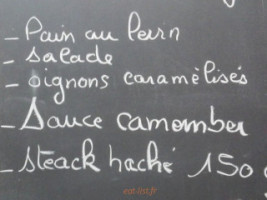 - Pain au levin
- salade
- oignons caramèlisés
- Sauce camember
- steack haché 150g
eat-list.fr